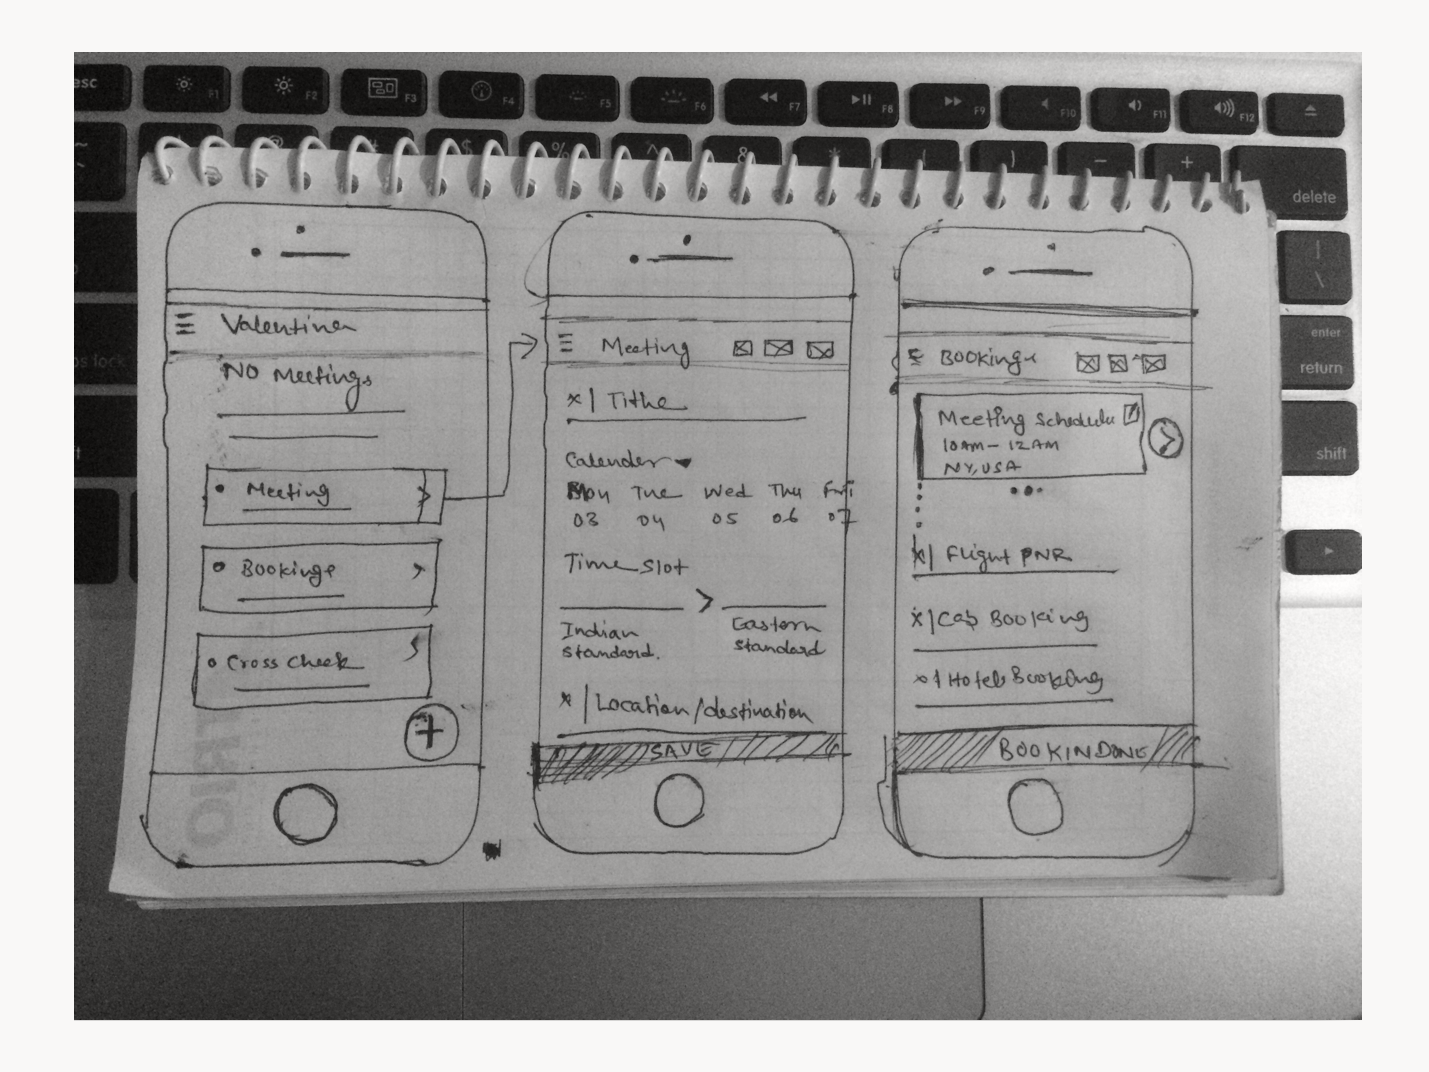 esc
F1
F2
F3
F4
F5
F6
F7
F8
F9
F10
F11
F12
$
%
^
&
*
)
–
+
delete
|
\
enter
return
shift
Valentiner
NO Meetings
Meeting
Bookings
Cross Check
+
Meeting
x | Tithe
Calender
Mon Tue Wed Thu Fri
03 04 05 06 07
Time slot
>
Indian Standard.
Eastern Standard
x | Location/destination
SAVE
Bookings
Meeting Schedule
10AM – 12AM
NY, USA
x | Flight PNR
x | Cab Booking
x | Hotel Booking
BOOKINDONE